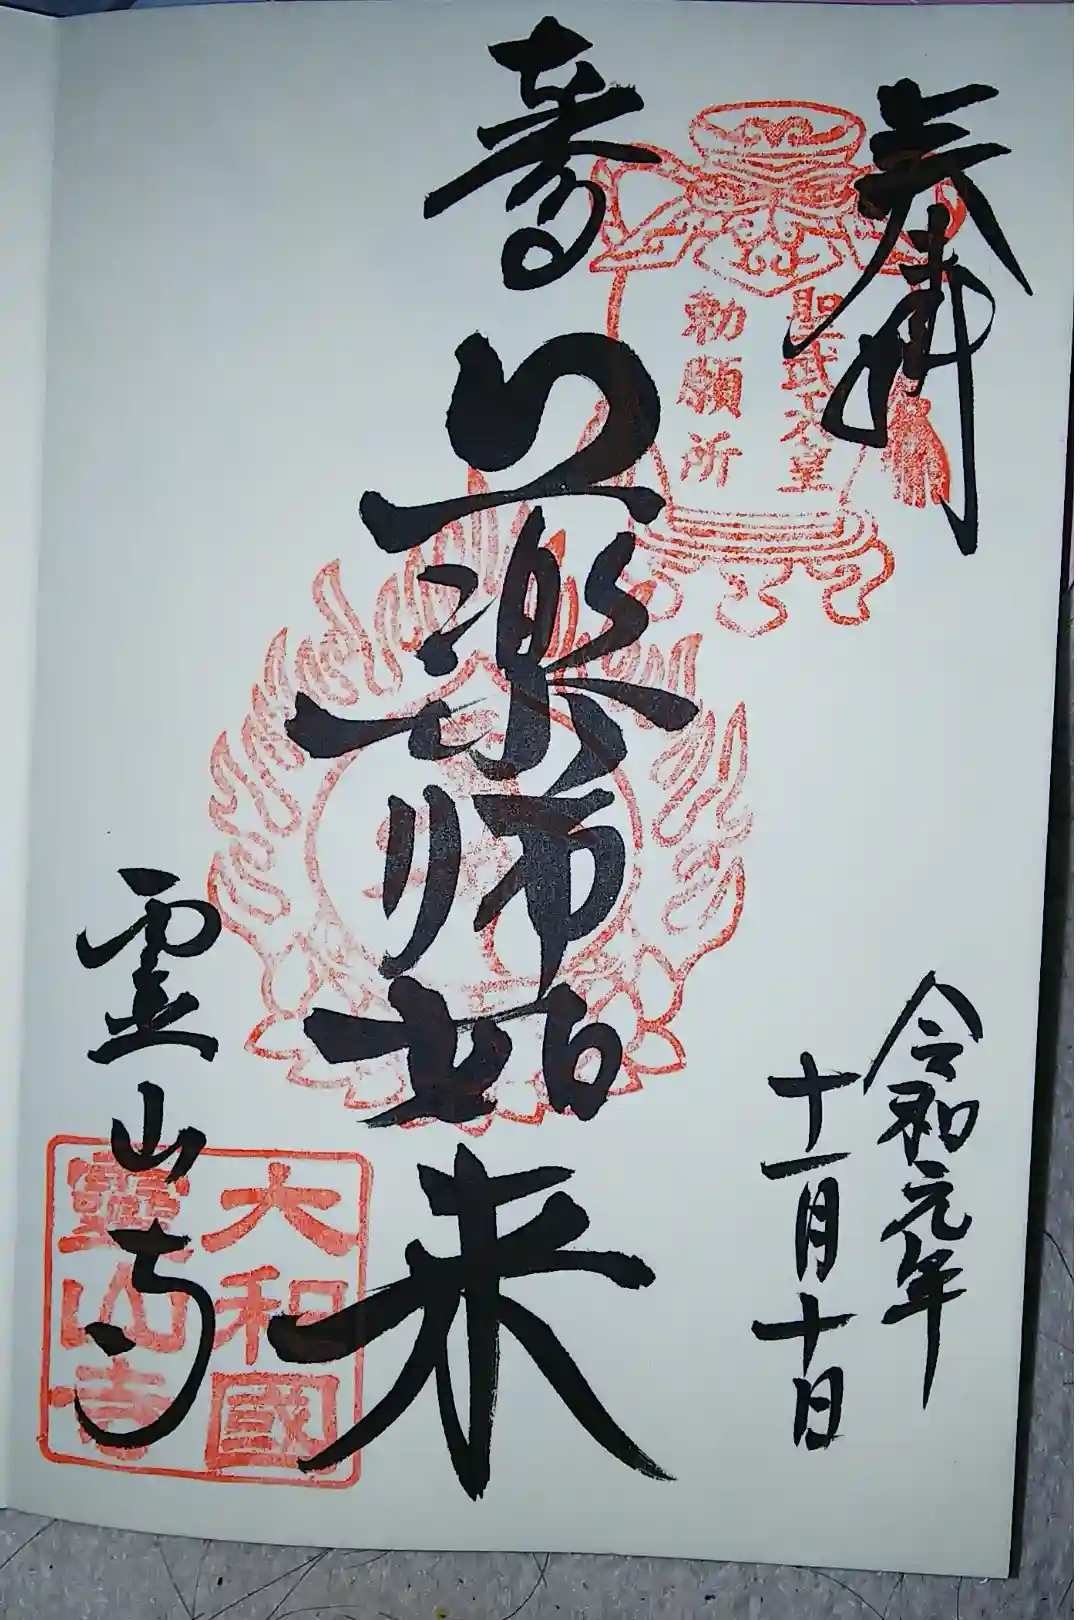 奉拝
聖武天皇
勅願所
令和元年
十一月十日
薬師如来
大和國
霊山寺
靈山寺